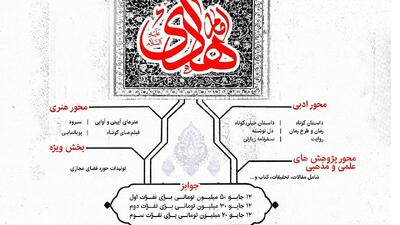 امام هادی
علیه السلام
محور ادبی
داستان کوتاه | داستان خیلی کوتاه
رمان و طرح رمان | دل نوشته
روایت | سفرنامه زیارتی
محور پژوهش های
علمی و مذهبی
شامل مقالات، تحقیقات، کتاب و...
محور هنری
هنرهای آیینی و آوایی | سرود
فیلم‌های کوتاه | پویانمایی
بخش ویژه
تولیدات حوزه فضای مجازی
جوایز
۱۲ جایزه ۵۰ میلیون تومانی برای نفرات اول
۱۲ جایزه ۳۰ میلیون تومانی برای نفرات دوم
۱۲ جایزه ۲۰ میلیون تومانی برای نفرات سوم